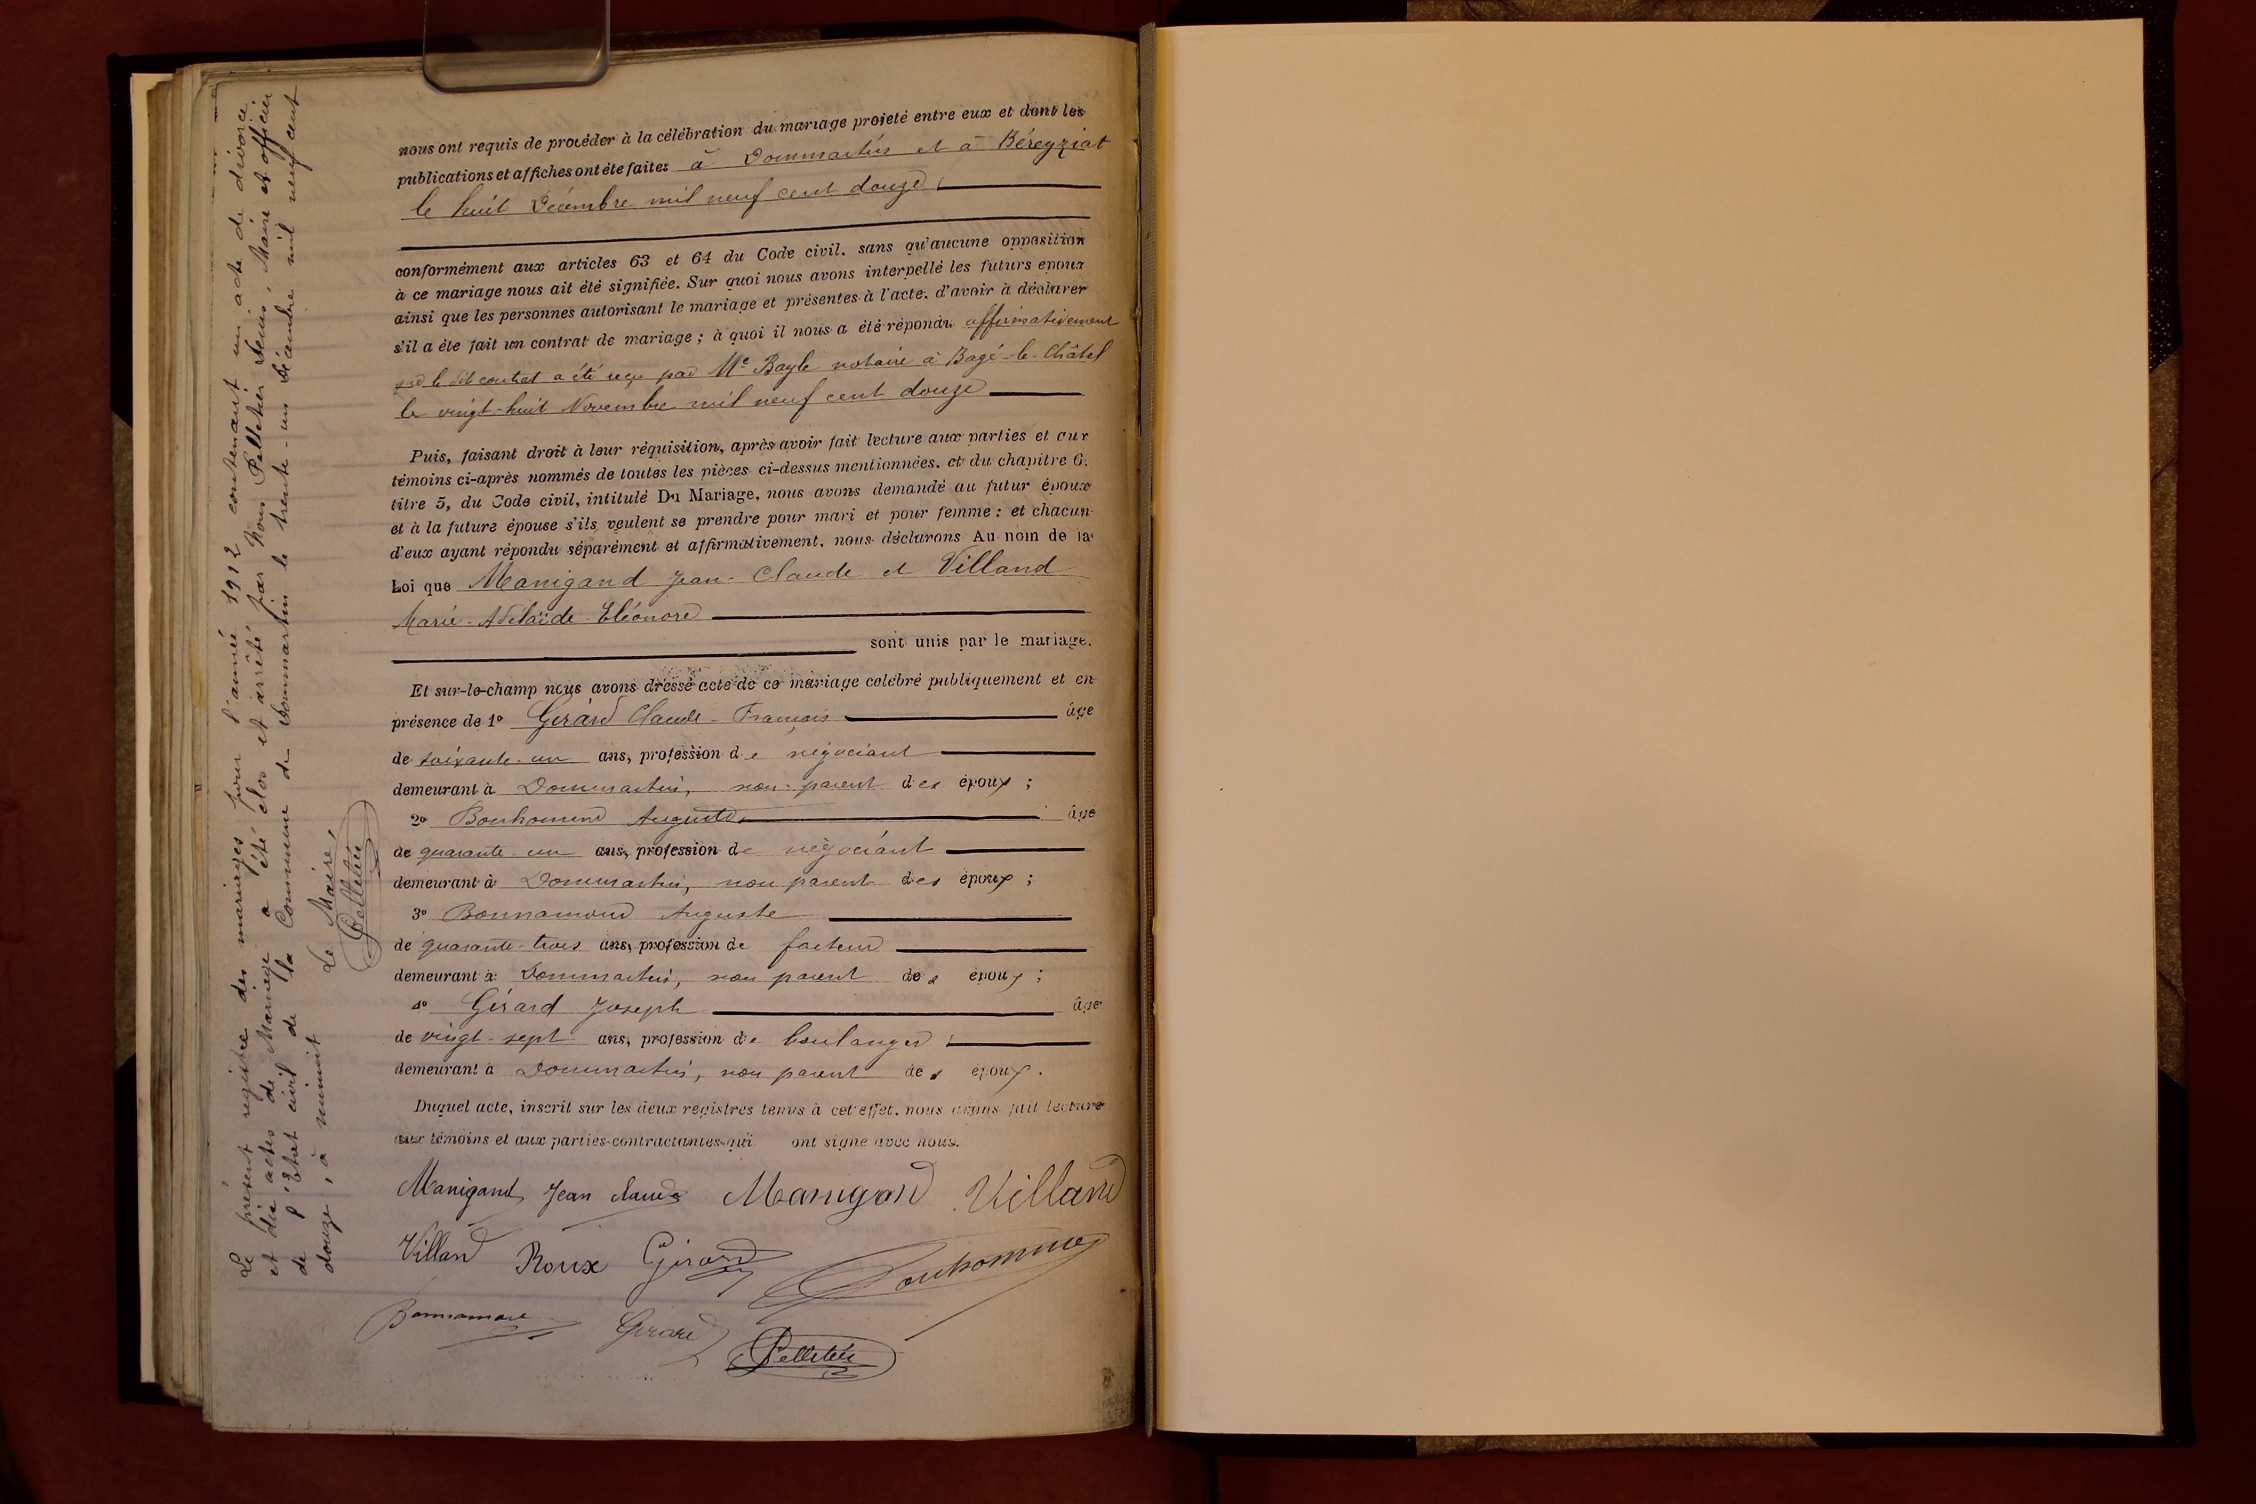 nous ont requis de procéder à la célébration du mariage projeté entre eux et dont les
publications et affiches ont été faites à Dommartin et à Béreyziat
le huit Décembre mil neuf cent douze
conformément aux articles 63 et 64 du Code civil, sans qu'aucune opposition
à ce mariage nous ait été signifiée. Sur quoi nous avons interpellé les futurs époux
ainsi que les personnes autorisant le mariage et présentes à l'acte, d'avoir à déclarer
s'il a été fait un contrat de mariage ; à quoi il nous a été répondu affirmativement
le dit contrat a été reçu par Me Bayle notaire à Bagé-le-Châtel
le vingt-huit Novembre mil neuf cent douze
Puis, faisant droit à leur réquisition, après avoir fait lecture aux parties et aux
témoins ci-après nommés de toutes les pièces ci-dessus mentionnées, et du chapitre 6,
titre 5, du Code civil, intitulé Du Mariage, nous avons demandé au futur époux
et à la future épouse s'ils veulent se prendre pour mari et pour femme : et chacun
d'eux ayant répondu séparément et affirmativement, nous déclarons Au nom de la
Loi que Manigand Jean-Claude et Villand
Marie-Adélaïde-Eléonore
sont unis par le mariage.
Et sur-le-champ nous avons dressé acte de ce mariage célébré publiquement et en
présence de 1º Gérard Claude-François âge
de soixante-un ans, profession de négociant
demeurant à Dommartin, non parent des époux ;
2º Bonhomme Auguste âge
de quarante-un ans, profession de négociant
demeurant à Dommartin, non parent des époux ;
3º Bonnamour Auguste
de quarante-trois ans, profession de facteur
demeurant à Dommartin, non parent des époux ;
4º Gérard Joseph âge
de vingt-sept ans, profession de boulanger
demeurant à Dommartin, non parent des époux.
Duquel acte, inscrit sur les deux registres tenus à cet effet, nous avons fait lecture
aux témoins et aux parties contractantes qui ont signé avec nous.
Manigand Jean Claude Manigand Villand
Villand Roux Girard Bonhomme
Bonnamour Gérard Pelletier
Le présent registre des mariages pour l'année 1912 contenant un acte de divorce
et dix actes de Mariage a été clos et arrêté par Nous Pelletier Denis, Maire et officier
de l'Etat civil de la Commune de Dommartin le trente-un Décembre mil neuf cent
douze, à minuit
Le Maire,
Pelletier